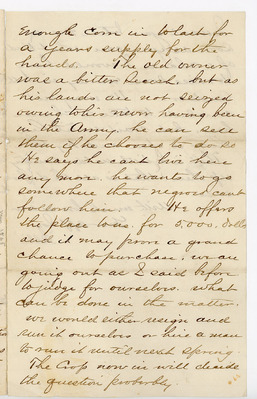 enough corn in to last for
a years supply for the
hands. The old owner
was a bitter Secesh, but as
his lands are not seized
owing to his never having been
in the Army, he can sell
them if he chooses to do so
He says he cant live here
any more, he wants to go
somewhere that negroes cant
follow him. He offers
the place to us, for 5,000. Dolls
and it may prove a grand
chance to purchase, we are
going out as I said before
to judge for ourselves. what
can be done in the matter.
we would either resign and
run it ourselves or hire a man
to run it until next spring.
The Crop now in will decide
the question probably